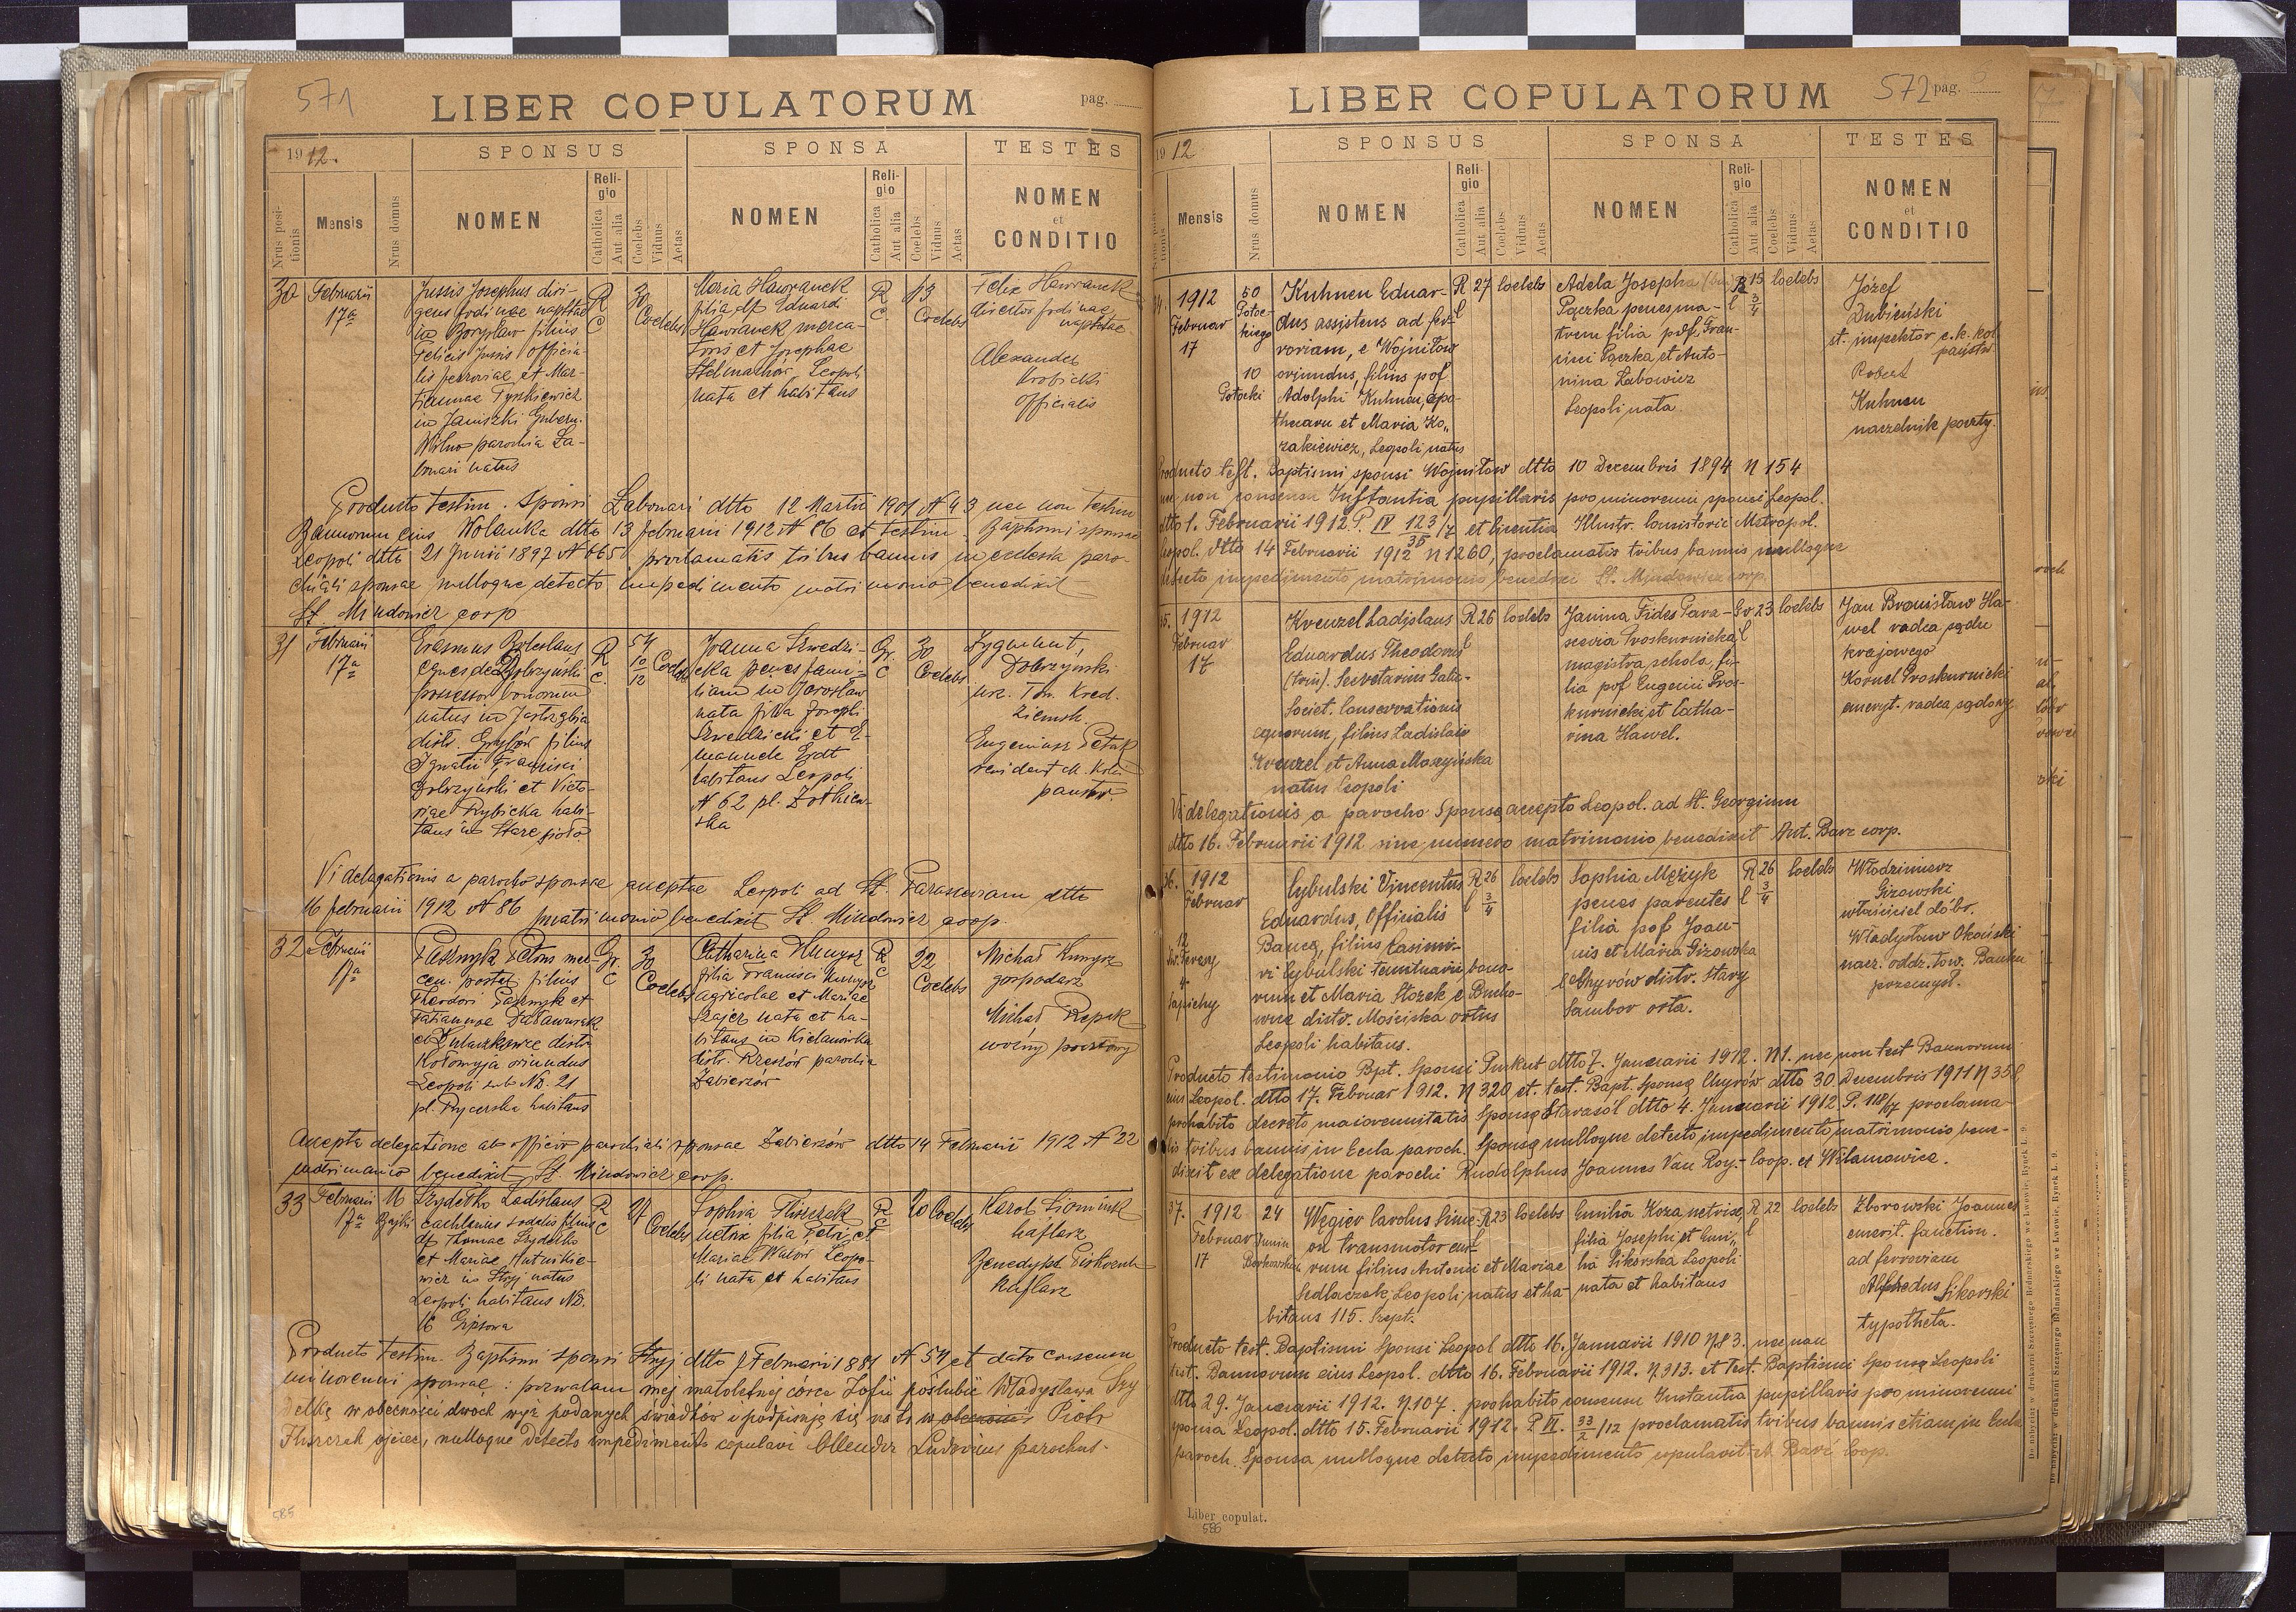 571
LIBER COPULATORUM
pag.
1912.
SPONSUS
SPONSA
TESTES
Nrus posi-
tionis
Mensis
Nrus domus
NOMEN
Reli-
gio
Catholica
Aut alia
Coelebs
Viduus
Aetas
NOMEN
Reli-
gio
Catholica
Aut alia
Coelebs
Viduus
Aetas
NOMEN
et
CONDITIO
30 Februarii
17a
Jussis Josephus diri-
gens fodinae naphtae
in Borysław filius
Felicis Jussis officia-
lis ferroviae et Mar-
Tyszkiewicz
in Janiszki Gubern.
Wilno parochia Ła-
bonari natus
R
C
30
Coelebs
Maria Hawranek
filia df Eduardi
Hawranek merca-
toris et Josephae
Stelmachów, Leopoli
nata et habitans
R
C
Coelebs
Felix Hawranek
director fodinae
naphtae
Alexander
officialis
Producto testim. Sponsi Łabonari dtto 12 Martii 1901 N 43 nec non testim
Bannorum eius Wolanka dtto 13 februarii 1912 N 86 et testim. Baptismi sponsae
Leopoli dtto 21 Junii 1897 N 665 proclamatis tribus bannis in ecclesia paro-
chiali sponsae nulloque detecto impedimento matrimonio benedixit
St. Mindowicz coop
31 Februarii
17a
Erasmus Boleslaus
Eques de Dobrzyński
possessor bonorum
natus in Jastrzębia
distr. Grybów filius
Ignatii Francisci
Dobrzyński et Victo-
riae Rybicka habi-
tans in Stare sioło
R
C
54
10
12
Coelebs
Joanna Szwedzi-
cka penes fami-
liam in Jarosław
nata filia Josephi
Szwedzicki et E-
manuele Erdt
habitans Leopoli
N 62 pl. Żółkiew-
ska
Gr.
C
30
Coelebs
Zygmunt
Dobrzyński
urz. Tow. Kred.
Ziemsk.
Eugeniusz Petak
revident ck. Kolei
państw.
Vi delegationis a parocho sponsae acceptae Leopoli ad St. Parasceviam dtto
16 februarii 1912 N 86 matrimonio benedixit St. Mindowicz coop.
32 Februarii
17a
cen. postal filius
Theodori Pasemyk et
Tatiannae
distr.
Kołomyja oriundus
Leopoli sub ND. 21
pl. Rycerska habitans
Gr.
C
30
Coelebs
Catharina Kunysz
filia Francisci Kunysz
agricolae et Mariae
Szajer nata et ha-
bitans in Kielanówka
distr. Rzeszów parochia
Zabierzów
R
C
22
Coelebs
Michał Kunysz
gospodarz
Michał Rspik
woźny pocztowy
Accepta delegatione ab officio parochiali sponsae Zabierzów dtto 14 Februarii 1912 N 22
matrimonio benedixit St. Mindowicz coop.
33 Februarii
17a
16
Szydełko Ladislaus
cachlarius sodalis filius
df Thomae Szydełko
et Mariae Antonikie-
wicz in Stryj natus
Leopoli habitans ND.
16 Gipsowa
R
C
27
Coelebs
Sophia Fliszczak
netrix filia Petri et
Mariae Leopo-
li nata et habitans
R
C
20 Coelebs
Karol
kaflarz
Benedykt
Kaflarz
Producto testim. Baptismi sponsi Stryj dtto 7 Februarii 1881 N 54 et dato consensu
minorenni sponsae: pozwalam mej małoletniej córce Zofii poślubić Władysława Szy
dełkę w obecności dwoch wyż podanych świadków i podpisuję się na to w obecności Piotr
Fliszczak ojciec, nulloque detecto impedimento copulavi Ollender Ludovicus parochus.
585
LIBER COPULATORUM
572 pag.
1912
SPONSUS
SPONSA
TESTES
Mensis
Nrus domus
NOMEN
Reli-
gio
Catholica
Aut alia
Coelebs
Viduus
Aetas
NOMEN
Reli-
gio
Catholica
Aut alia
Coelebs
Viduus
Aetas
NOMEN
et
CONDITIO
1912
Februar
17
50
Potoc-
kiego
10
Gołocki
Kuhnen Eduar-
dus assistens ad fer-
roviam, e Wojniłow
oriundus, filius pof
Adolphi Kuhnen, apo-
thecarii et Maria Ko-
zakiewicz, Leopoli natus
R
C
27
Coelebs
Adela Josepha
Pączka penes ma-
trem filia pdf. Fran-
cisci Pączka et Anto-
nina Łabowicz
Leopoli nata
R
C
15
3/4
Coelebs
Józef
Dubieński
st. inspektor c.k. kol.
państw
Robert
Kuhnen
naczelnik poczty.
Producto test. Baptismi sponsi Wojniłow dtto 10 Decembris 1894 N 154
nec non consensu Instantia pupillaris pro minorenni sponsi Leopol.
dtto 1. Februarii 1912 P. IV 123/7 et licentia Illustr. Consistorii Metropol.
Leopol. dtto 14 Februarii 1912 N 1260, proclamatis tribus bannis nulloque
detecto impedimento matrimonio benedixi St. Mindowicz coop.
35. 1912
Februar
17
Kreuzel Ladislaus
Eduardus Theodorus
(trin). Secretarius Gali-
Societ. Conservationis
aquarum, filius Ladislai
Kreuzel et Anna Moszyńska
natus Leopoli
R
C
26
Coelebs
Janina Fides Para-
scevia Proskurnicka
magistra schola, fi-
lia pof Eugenii Pros-
kurnicki et Catha-
rina Hawel.
Gr
C
23
Coelebs
Jan Bronisław Ha-
wel radca sądu
krajowego
Kornel Proskurnicki
emeryt. radca sądowy.
Vi delegationis a parocho Sponsę accepto Leopol. ad St. Georgium
dtto 16. Februarii 1912 sine numero matrimonio benedixit Ant. Barz coop.
36. 1912
Februar
12
Św. Teresy
4
Sapiehy
Cybulski Vincentus
Eduardus, Officialis
Bancę, filius Casimi-
ri Cybulski tenutarii bono-
rum et Maria Storek e Bucho-
wice distr. Mościska ortus
Leopoli habitans.
R
C
26
3/4
Coelebs
Sophia Mężyk
penes parentes
filia pof Joan-
nis et Maria Gizowska
e Chyrów distr. Stary
Sambor orta.
R
C
26
3/4
Coelebs
Włodzimierz
Gizowski
właściciel dóbr.
Władysław Okoński
nacz. oddz. tow. Banku
przemysł.
Producto testimonio Bpt. Sponsi Purkut dtto 7. Januarii 1912. N 1. nec non test Bannorum
eius Leopol. dtto 17. Februar 1912. N 320 et. test. Bapt. Sponsę Chyrów dtto 30. Decembris 1911 N 358
prohabito decreto maiorennitatis Sponsę Starasól dtto 4. Januarii 1912 P. 118/07 proclama-
tis tribus bannis in Eccla paroch. Sponsę nulloque detecto impedimento matrimonio bene-
dixit ex delegatione parochi Rudolphus Joannes Van Roy. Coop. et Wilamowice.
37. 1912
Februar
17
24
Junim
Borkowskich
Węgier Carolus Sime-
on transmotor cur-
rum filius Antonii et Mariae
Sedlaczek, Leopoli natus et ha-
bitans 115. Szept.
R
C
23
Coelebs
Emilia Koza netrix,
filia Josephi et Emi-
lia Sikorska Leopoli
nata et habitans
R
C
22
Coelebs
Zborowski Joannes
emerit. function.
ad ferroviam
Alfredus Sikorski
typotheta.
Producto test. Baptismi Sponsi Leopol dtto 16. Januarii 1910 N 83. nec non
test. Bannorum eius Leopol. dtto 16. Februarii 1912. N 313. et Test. Baptismi Sponsę Leopoli
dtto 29. Januarii 1912. N 107. prohabito consensu Instantia pupillaris pro minorenni
sponsa Leopol. dtto 15. Februarii 1912. P VI. 33/2/12 proclamatis tribus bannis etiam in Eccla
paroch. Sponsa nulloque detecto impedimento copulavit A. Barz Coop.
Liber copulat.
586
Do nabycia w drukarni Szczęsnego Bednarskiego we Lwowie, Rynek L. 9.
Do nabycia w drukarni Szczęsnego Bednarskiego we Lwowie, Rynek L. 9.